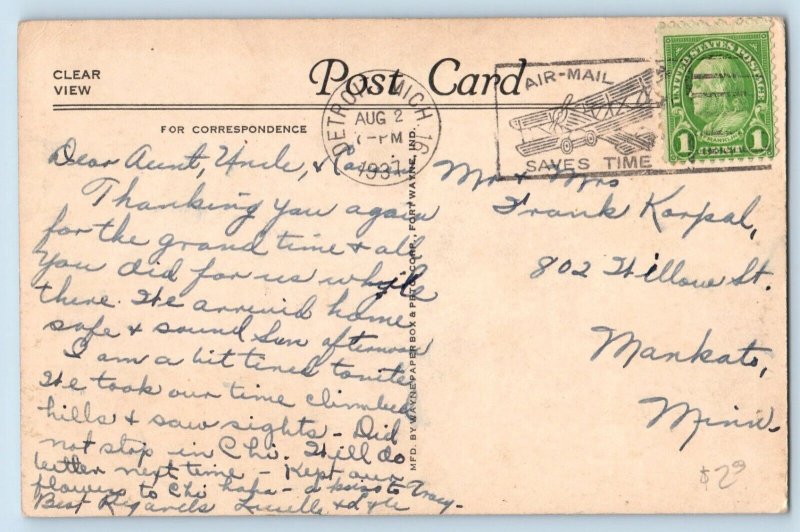 CLEAR
VIEW
Post Card
FOR CORRESPONDENCE
DETROIT MICH 16
AUG 2
7-PM
1937
AIR-MAIL
SAVES TIME
UNITED STATES POSTAGE
FRANKLIN
1 CENT 1
Dear Aunt, Uncle, &
Thanking you again
for the grand time & all
you did for us while
there. We arrived home
safe & sound Sun afternoon
I am a bit tired tonite
We took our time climbed
hills & saw sights - Did
not stop in Chi. Will do
better next time - Kept our
flowers to Chi haha - a kiss to Tracy.
Best Regards Lucille &
MFD. BY WAYNE PAPER BOX & PRTG. CORP., FORT WAYNE, IND.
Mr & Mrs
Frank Karpal,
802 Willow St.
Mankato,
Minn.
$2 29